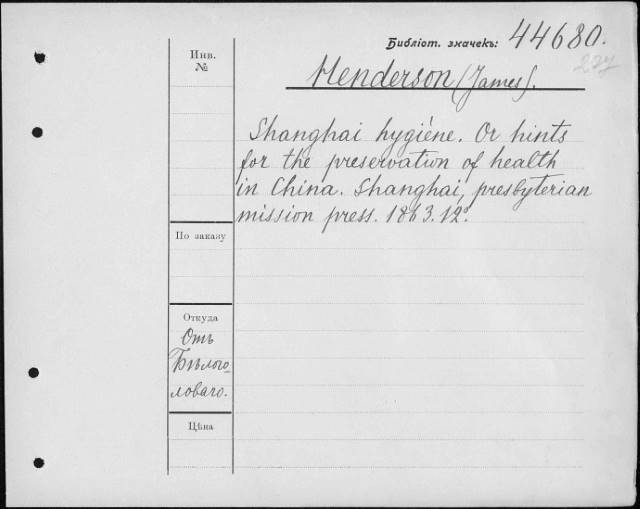 Библіот. значекъ: 44680.
237
Инв.
№
Henderson (James).
Shanghai hygiéne. Or hints
for the preservation of health
in China. Shanghai, presbyterian
mission press. 1863. 12º.
По заказу
Откуда
Отъ
Бѣлого-
ловаго.
Цѣна